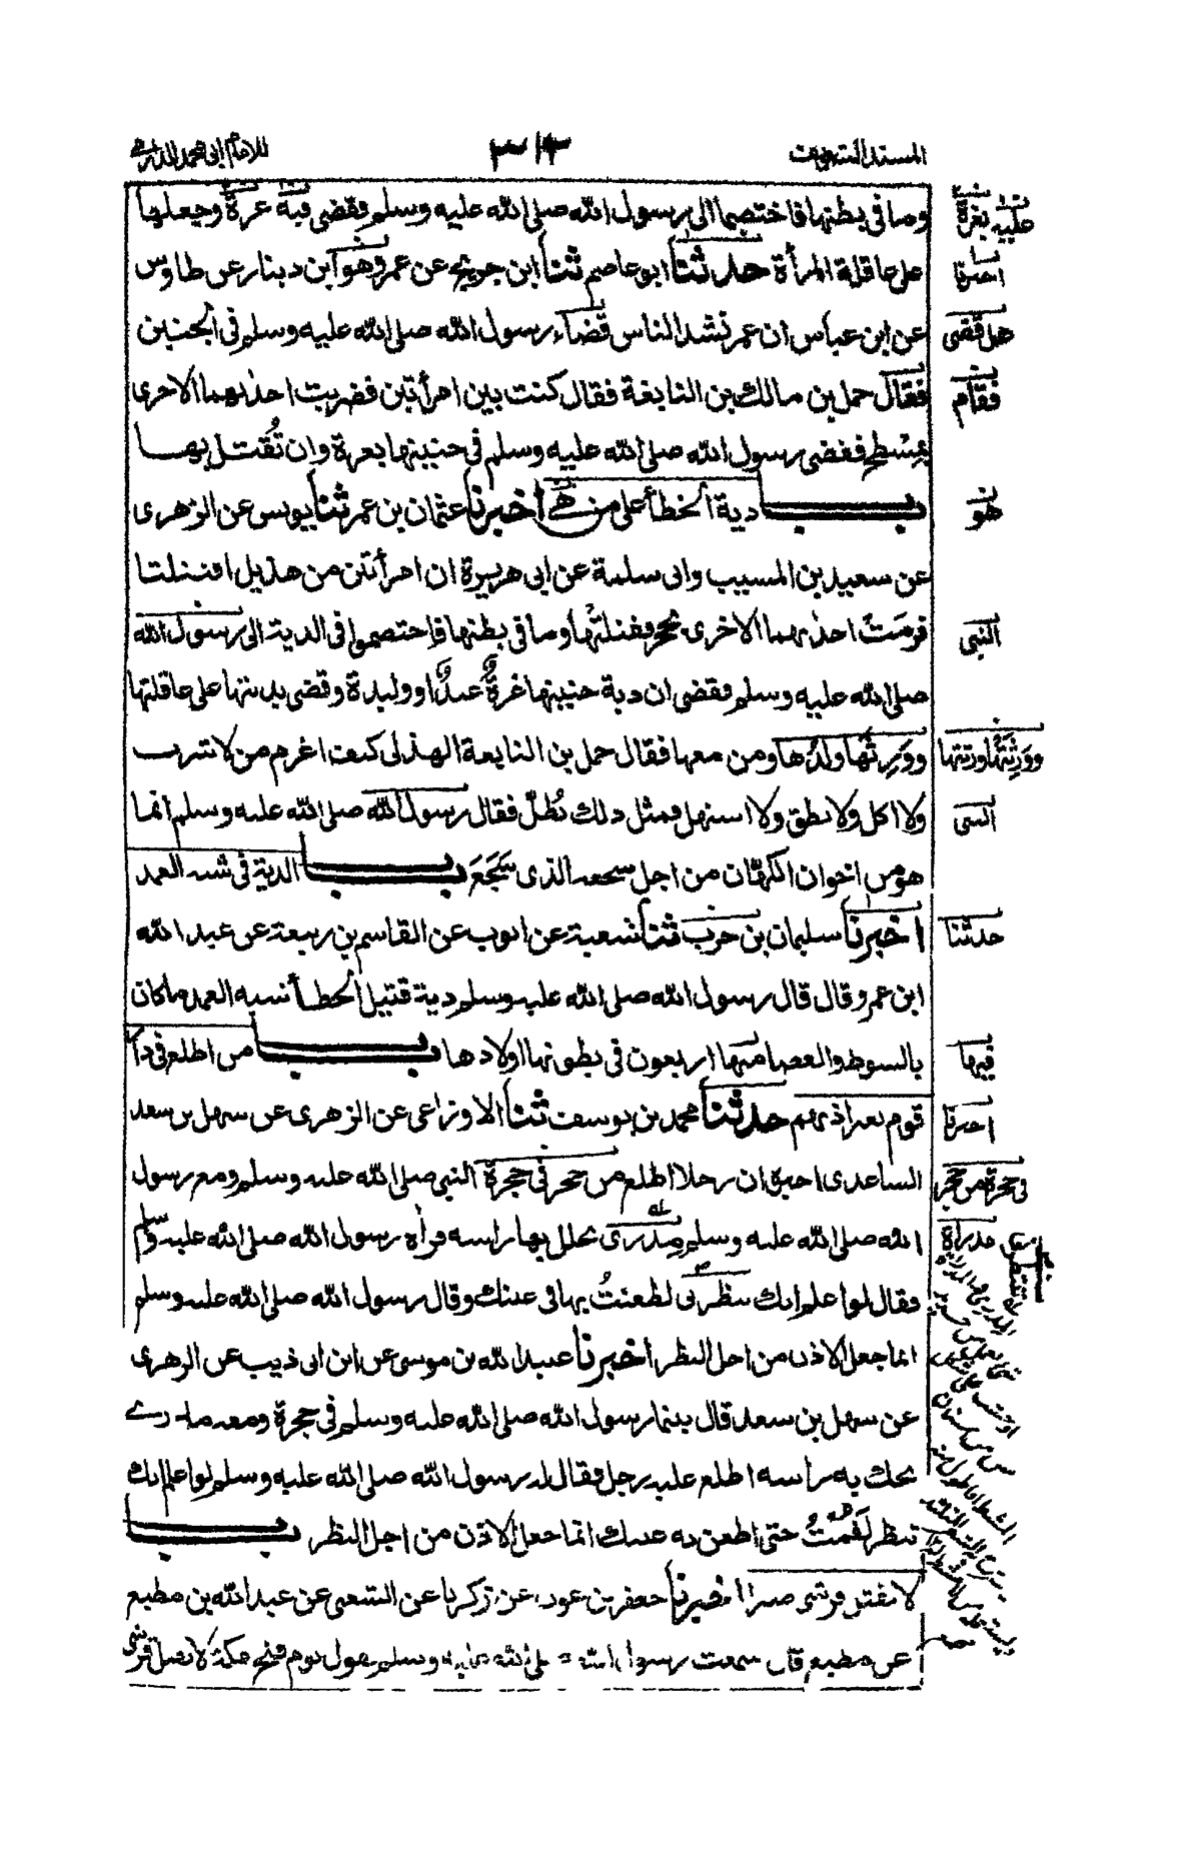 المسند الشريف
٣١٣
للامام ابي محمد الدارمي
وما في بطنها فاختصما الى رسول الله صلى الله عليه وسلم فقضى فيه غرة وجعلها
على عاقلة المرأة حدثنا ابو عاصم ثنا ابن جريج عن عمرو هو ابن دينار عن طاوس
عن ابن عباس ان عمر نشد الناس قضاء رسول الله صلى الله عليه وسلم في الجنين
فقال حمل بن مالك بن النابغة فقال كنت بين امرأتين فضربت احدٰهما الاخرى
بمِسْطح فقضى رسول الله صلى الله عليه وسلم في جنينها بغرة وان تُقتل بها
بــاب دية الخطأ على من هي اخبرنا عثمان بن عمر ثنا يونس عن الزهرى
عن سعيد بن المسيب وابى سلمة عن ابى هريرة ان امرأتين من هذيل اقتتلتا
فرمَت احدٰهما الاخرى بحجر فقتلتها وما في بطنها فاختصموا في الدية الى رسول الله
صلى الله عليه وسلم فقضى ان دية جنينها غرةٌ عبدٌ او وليدة وقضى بديتها على عاقلتها
ووَرِثَها ولدُها ومن معها فقال حمل بن النابغة الهذلى كيف اغرم من لا شرب
ولا اكل ولا نطق ولا استهل فمثل ذلك يُطلّ فقال رسول الله صلى الله عليه وسلم انما
هو من اخوان الكهّان من اجل سجعه الذى سَجَعَ بــاب الدية في شبه العمد
اخبرنا سليمان بن حرب ثنا شعبة عن ايوب عن القاسم بن ربيعة عن عبد الله
ابن عمرو قال قال رسول الله صلى الله عليه وسلم دية قتيل الخطأ شبه العمد ما كان
بالسوط والعصا منها اربعون في بطونها اولادها بــاب من اطلع في دار
قوم بغير اذنهم حدثنا محمد بن يوسف ثنا الاوزاعى عن الزهرى عن سهل بن سعد
الساعدى اخبره ان رجلا اطلع من جحر في حجرة النبى صلى الله عليه وسلم ومع رسول
الله صلى الله عليه وسلم مِدرى يخلل بها راسه فراٰه رسول الله صلى الله عليه وسلم
فقال لو اعلم انك تنظرنى لطعنتُ بها في عينك وقال رسول الله صلى الله عليه وسلم
انما جعل الاذن من اجل النظر اخبرنا عبيد الله بن موسى عن ابن ابى ذيب عن الزهرى
عن سهل بن سعد قال بينا رسول الله صلى الله عليه وسلم في حجرة ومعه مدرے
يحك به راسه اطلع عليه رجل فقال له رسول الله صلى الله عليه وسلم لو اعلم انك
تنظر لقمتُ حتى اطعن به عينك انما جعل الاذن من اجل النظر بــاب
لا يقتل قرشى صبرا اخبرنا جعفر بن عون عن زكريا عن الشعبى عن عبد الله بن مطيع
عن مطيع قال سمعت رسول الله صلى الله عليه وسلم يقول يوم فتح مكة لا يقتل قرشى
عليه بغرة
اخبرنا
هل قضى
فقام
هو
النبى
ووَرِثَتْها ورثتها
النبى
حدثنا
فيها
اخبرنا
في حجرة من جحر
مدراة